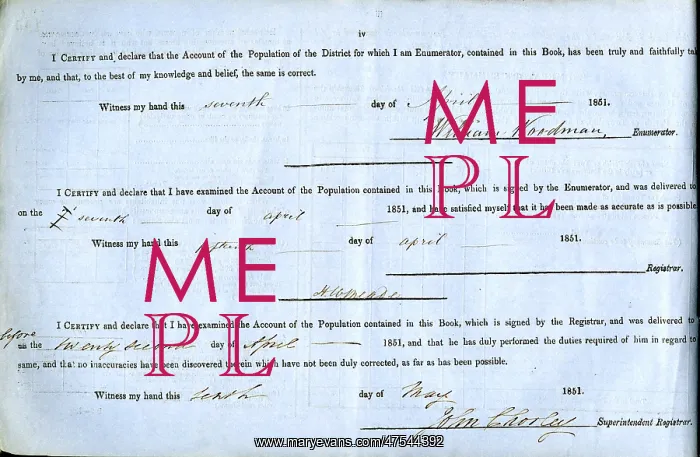 iv
I CERTIFY and declare that the Account of the Population of the District for which I am Enumerator, contained in this Book, has been truly and faithfully
by me, and that, to the best of my knowledge and belief, the same is correct.
Witness my hand this seventh day of April 1851.
William Woodman, Enumerator.
I CERTIFY and declare that I have examined the Account of the Population contained in this Book, which is signed by the Enumerator, and was delivered to
on the seventh day of april 1851, and have satisfied myself that it has been made as accurate as is possible
Witness my hand this day of april 1851.
Registrar.
I CERTIFY and declare that I have examined the Account of the Population contained in this Book, which is signed by the Registrar, and was delivered to
before
on the twenty second day of April 1851, and that he has duly performed the duties required of him in regard to
same, and that no inaccuracies have been discovered therein which have not been duly corrected, as far as has been possible.
Witness my hand this tenth day of May 1851.
John Chorley Superintendent Registrar.
ME
PL
ME
PL
www.maryevans.com/47544392